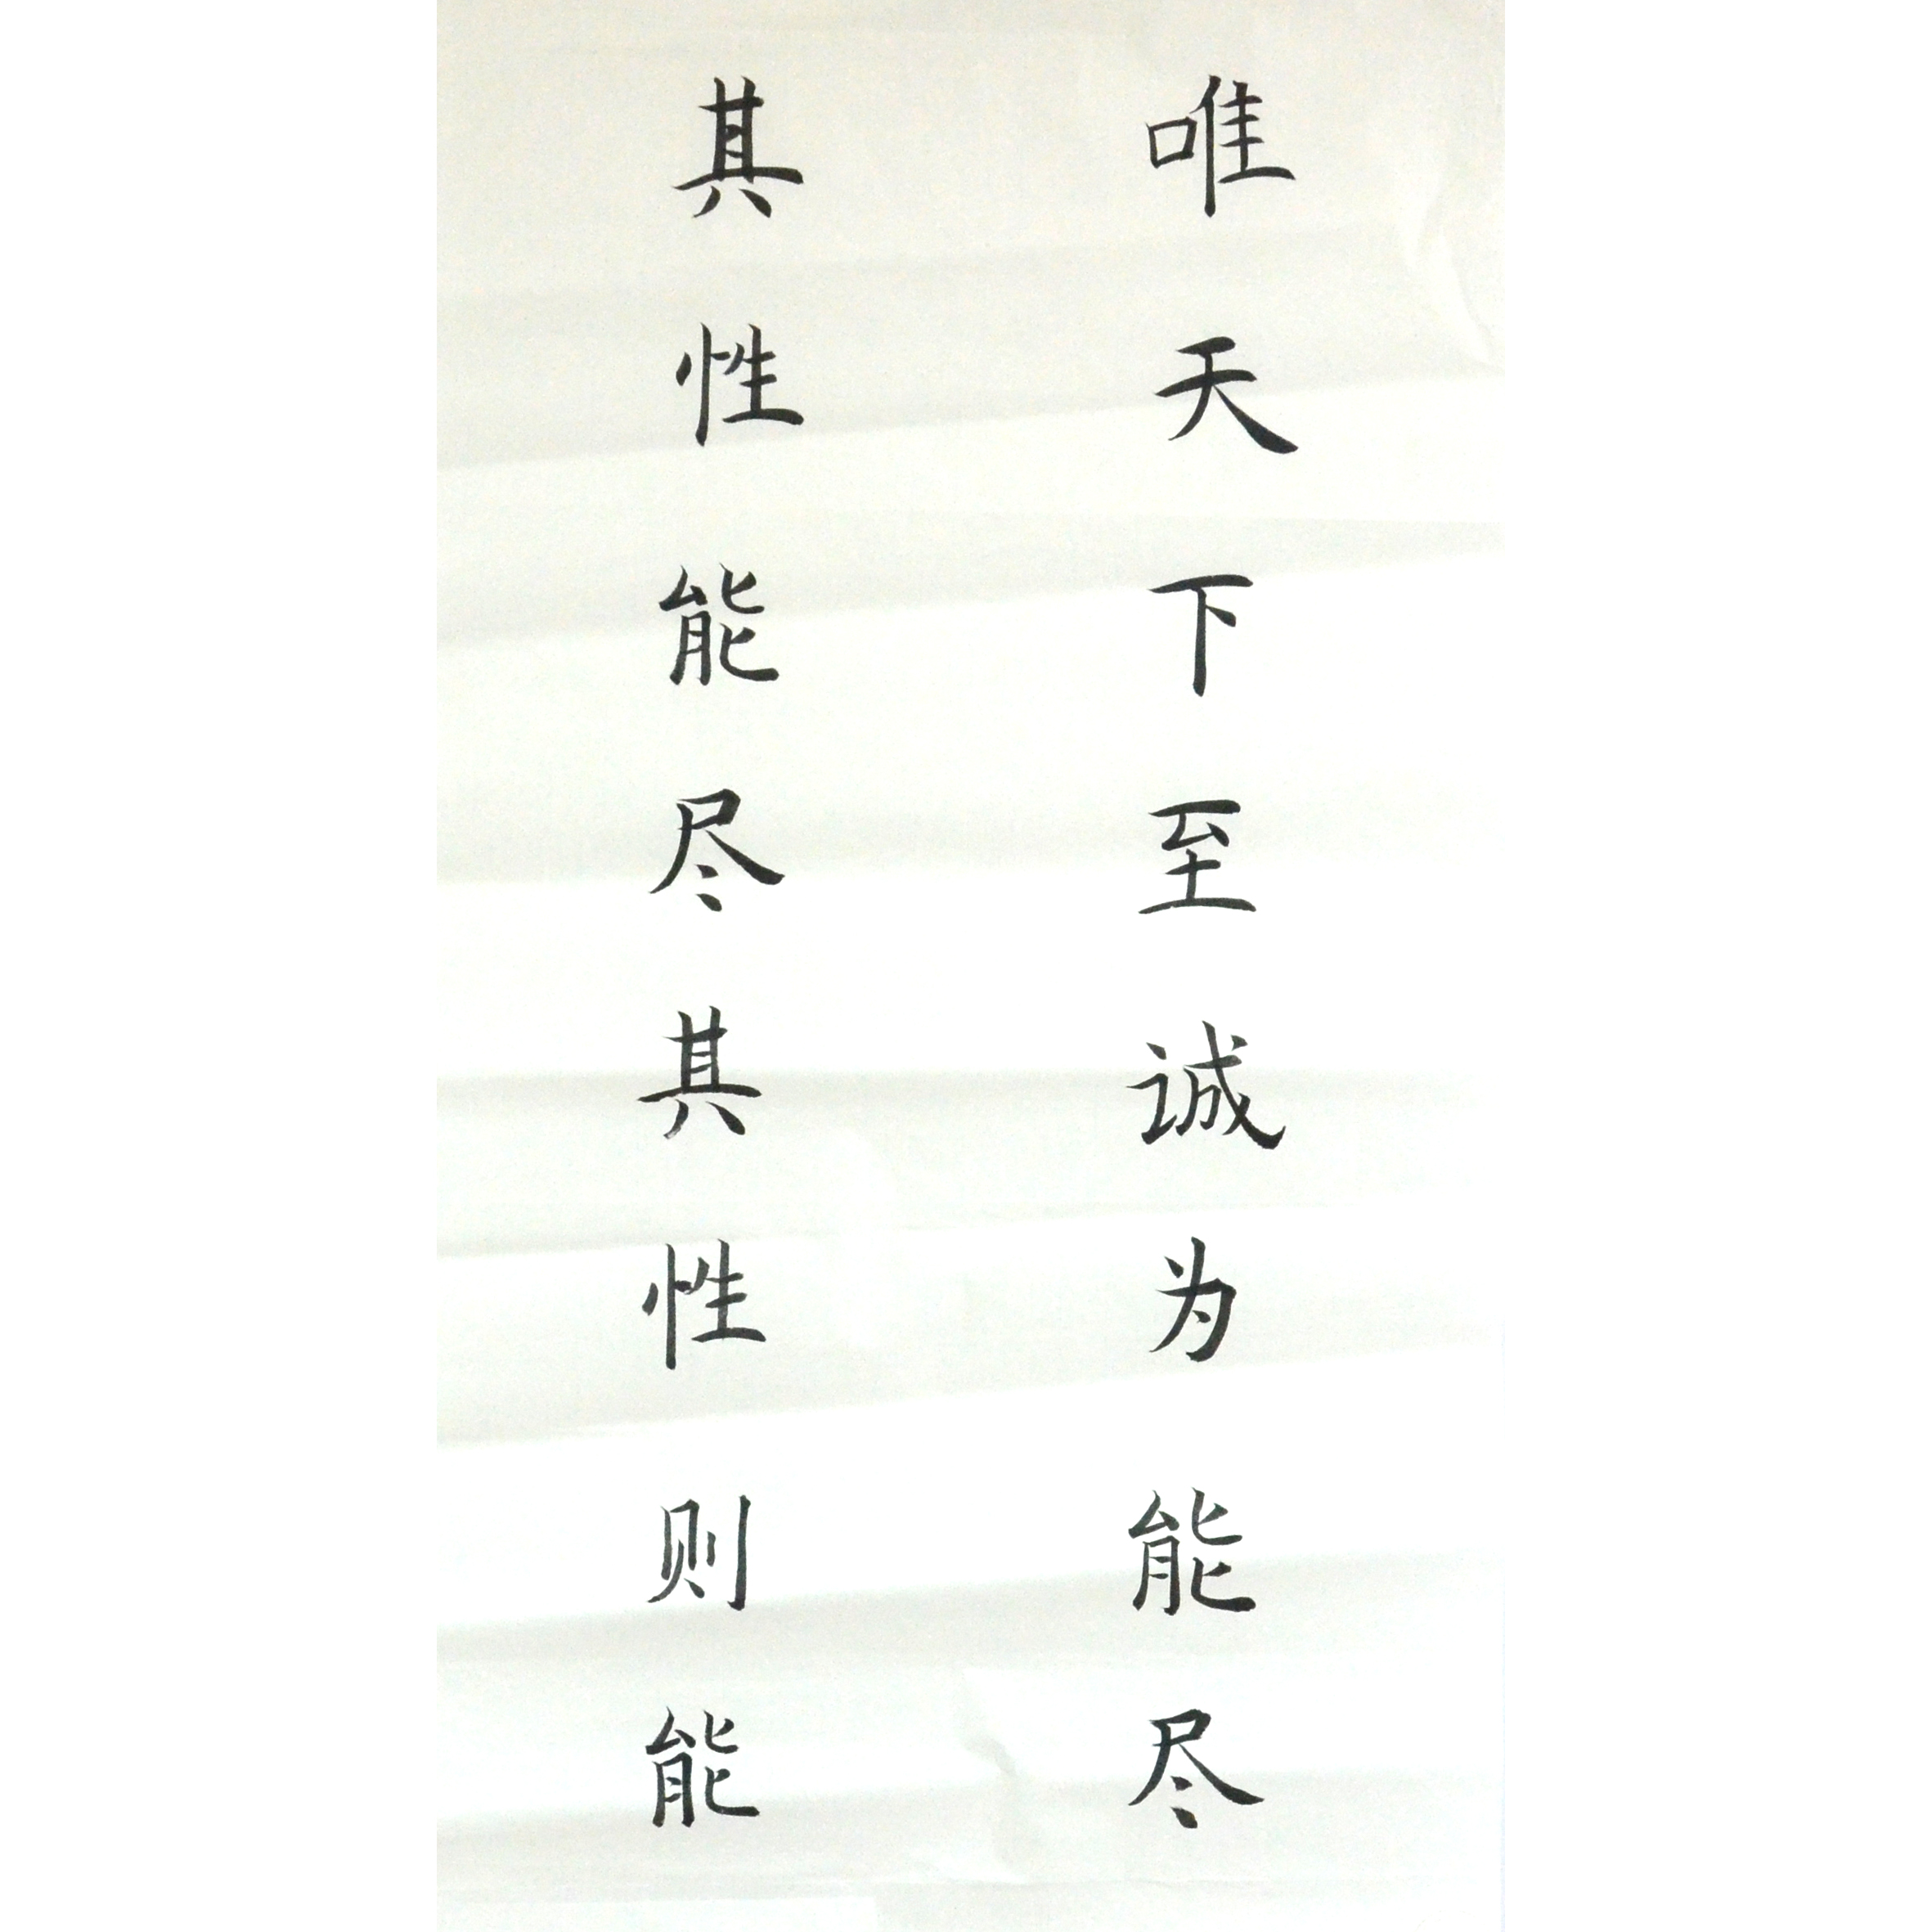 唯天下至诚为能尽
其性能尽其性则能